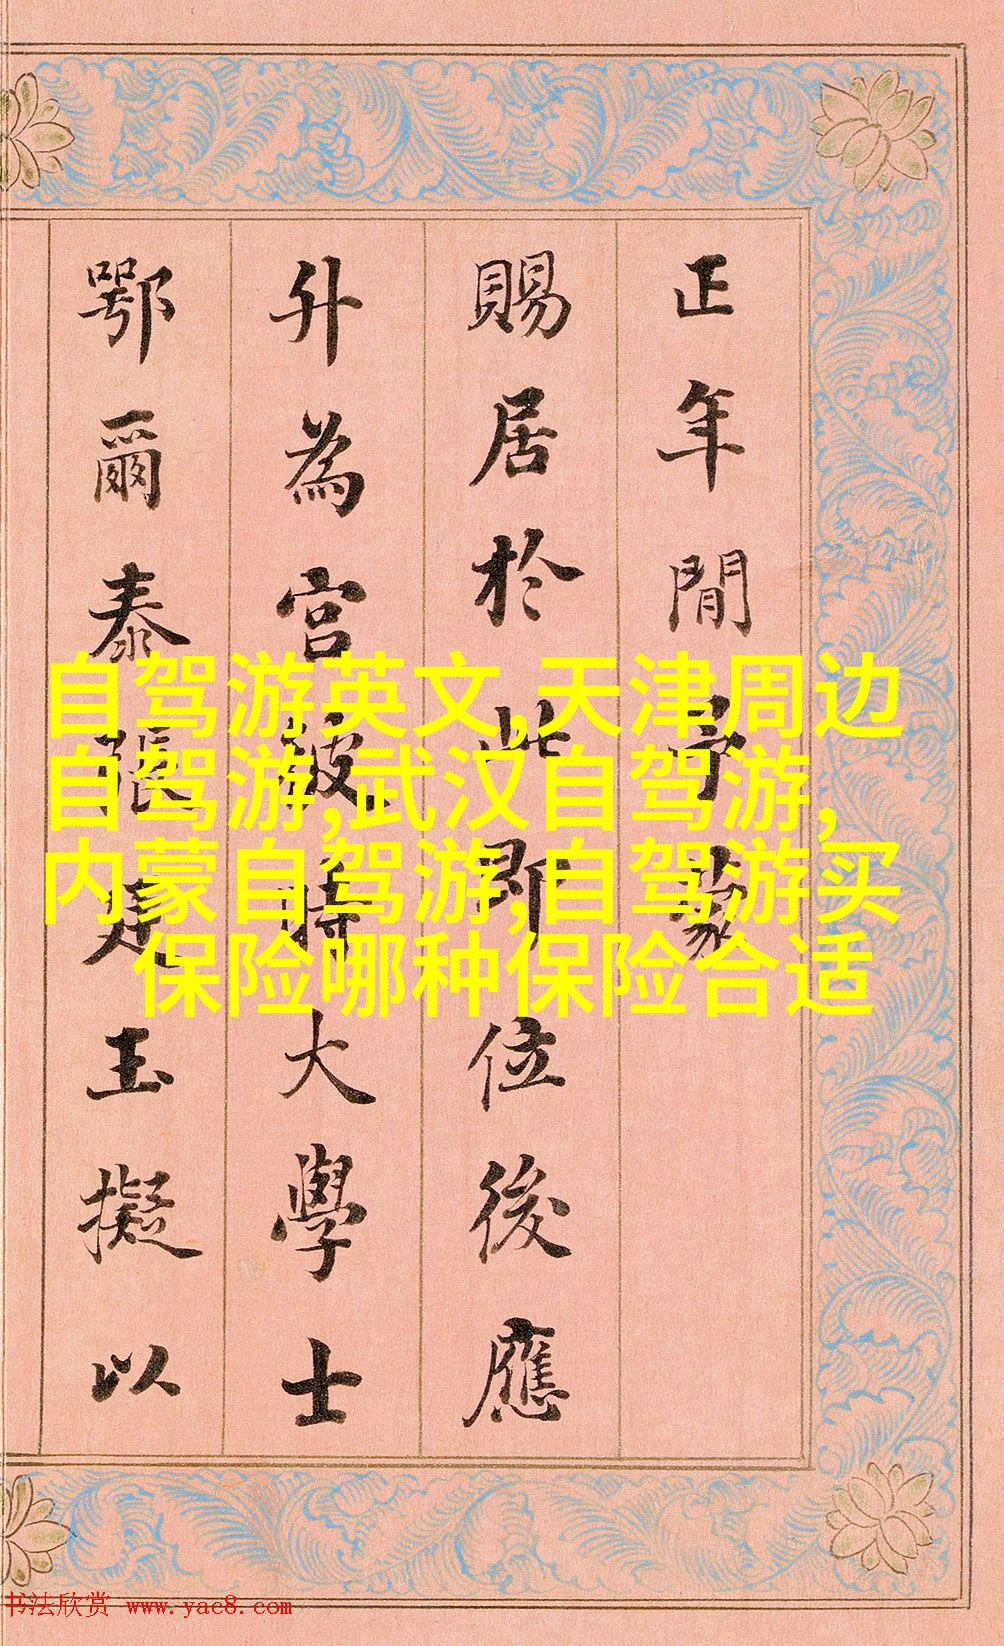 正年間予蒙
賜居於此即位後應
升為宮彼時大學士
鄂爾泰張廷玉擬以
自驾游英文,天津周边
自驾游,武汉自驾游,
内蒙自驾游,自驾游买
保险哪种保险合适
书法欣赏 www.yac8.com